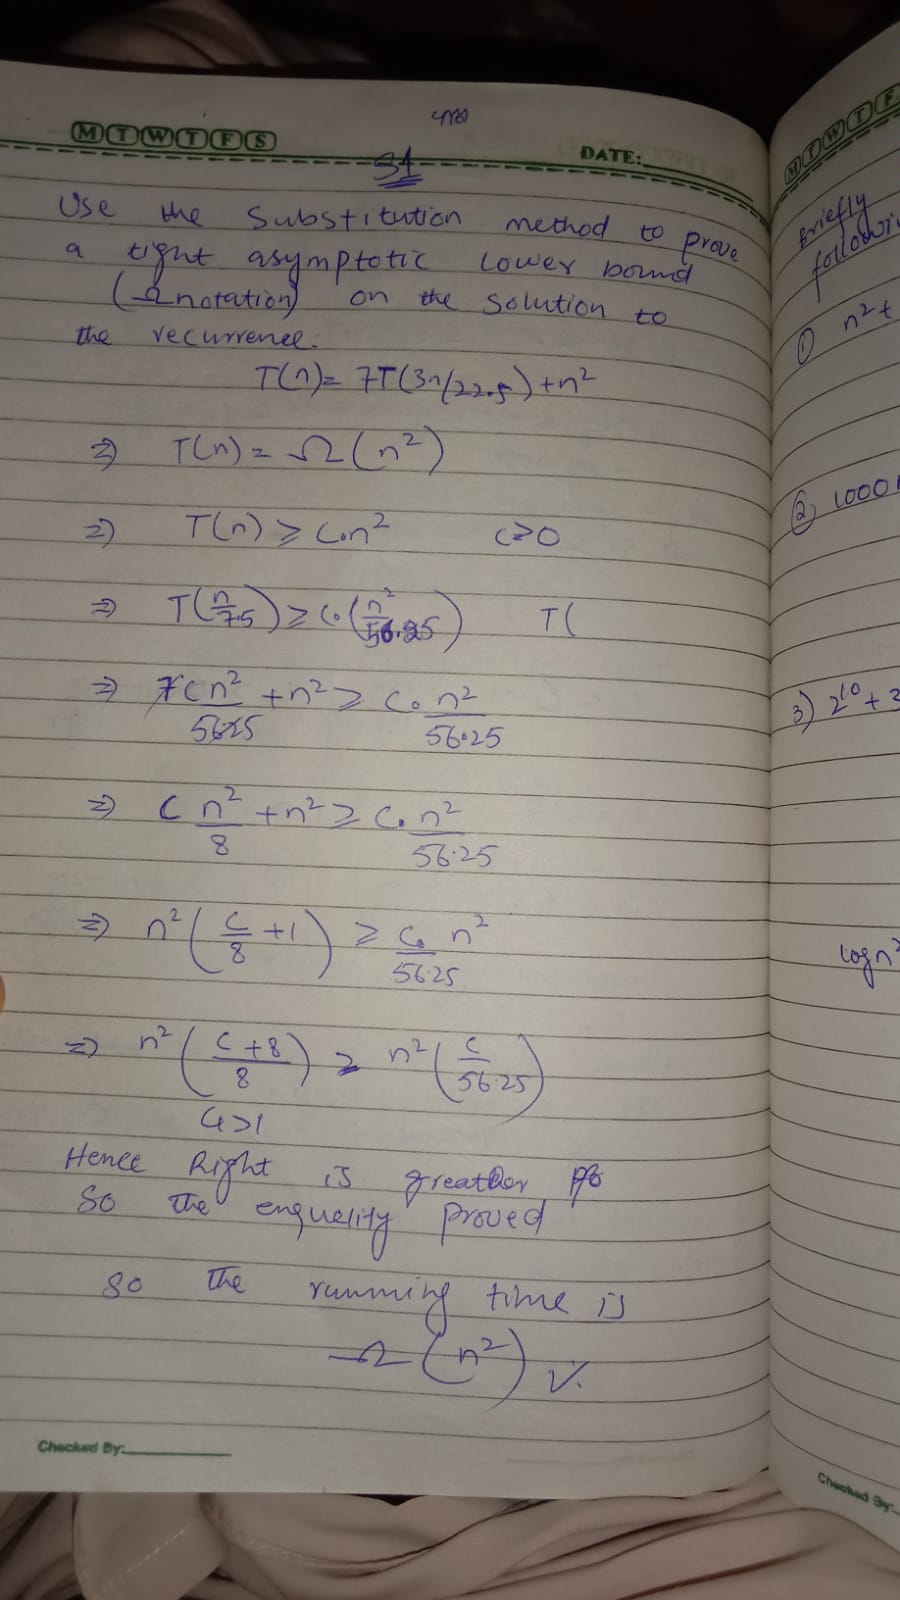 M T W T F S
DATE:
Use the Substitution method to prove
a tight asymptotic Lower bound
(Ω notation) on the solution to
the recurrence.
T(n) = 7T(3n/22.5) + n²
⇒ T(n) = Ω(n²)
⇒ T(n) ≥ c.n² c>0
⇒ T(n/7.5) ≥ c.(n²/56.25) T(
⇒ 7cn²/56.25 + n² ≥ c.n²/56.25
⇒ c n²/8 + n² ≥ c.n²/56.25
⇒ n²(c/8 + 1) ≥ c. n²/56.25
⇒ n²(c+8/8) ≥ n²(c/56.25)
Hence Right is
So the enquelity proved
so the running time is
Ω(n²)
Checked By:
M T W T F
Briefly
① n²+
② 1000
3) 2¹⁰+3
logn²
Checked By: